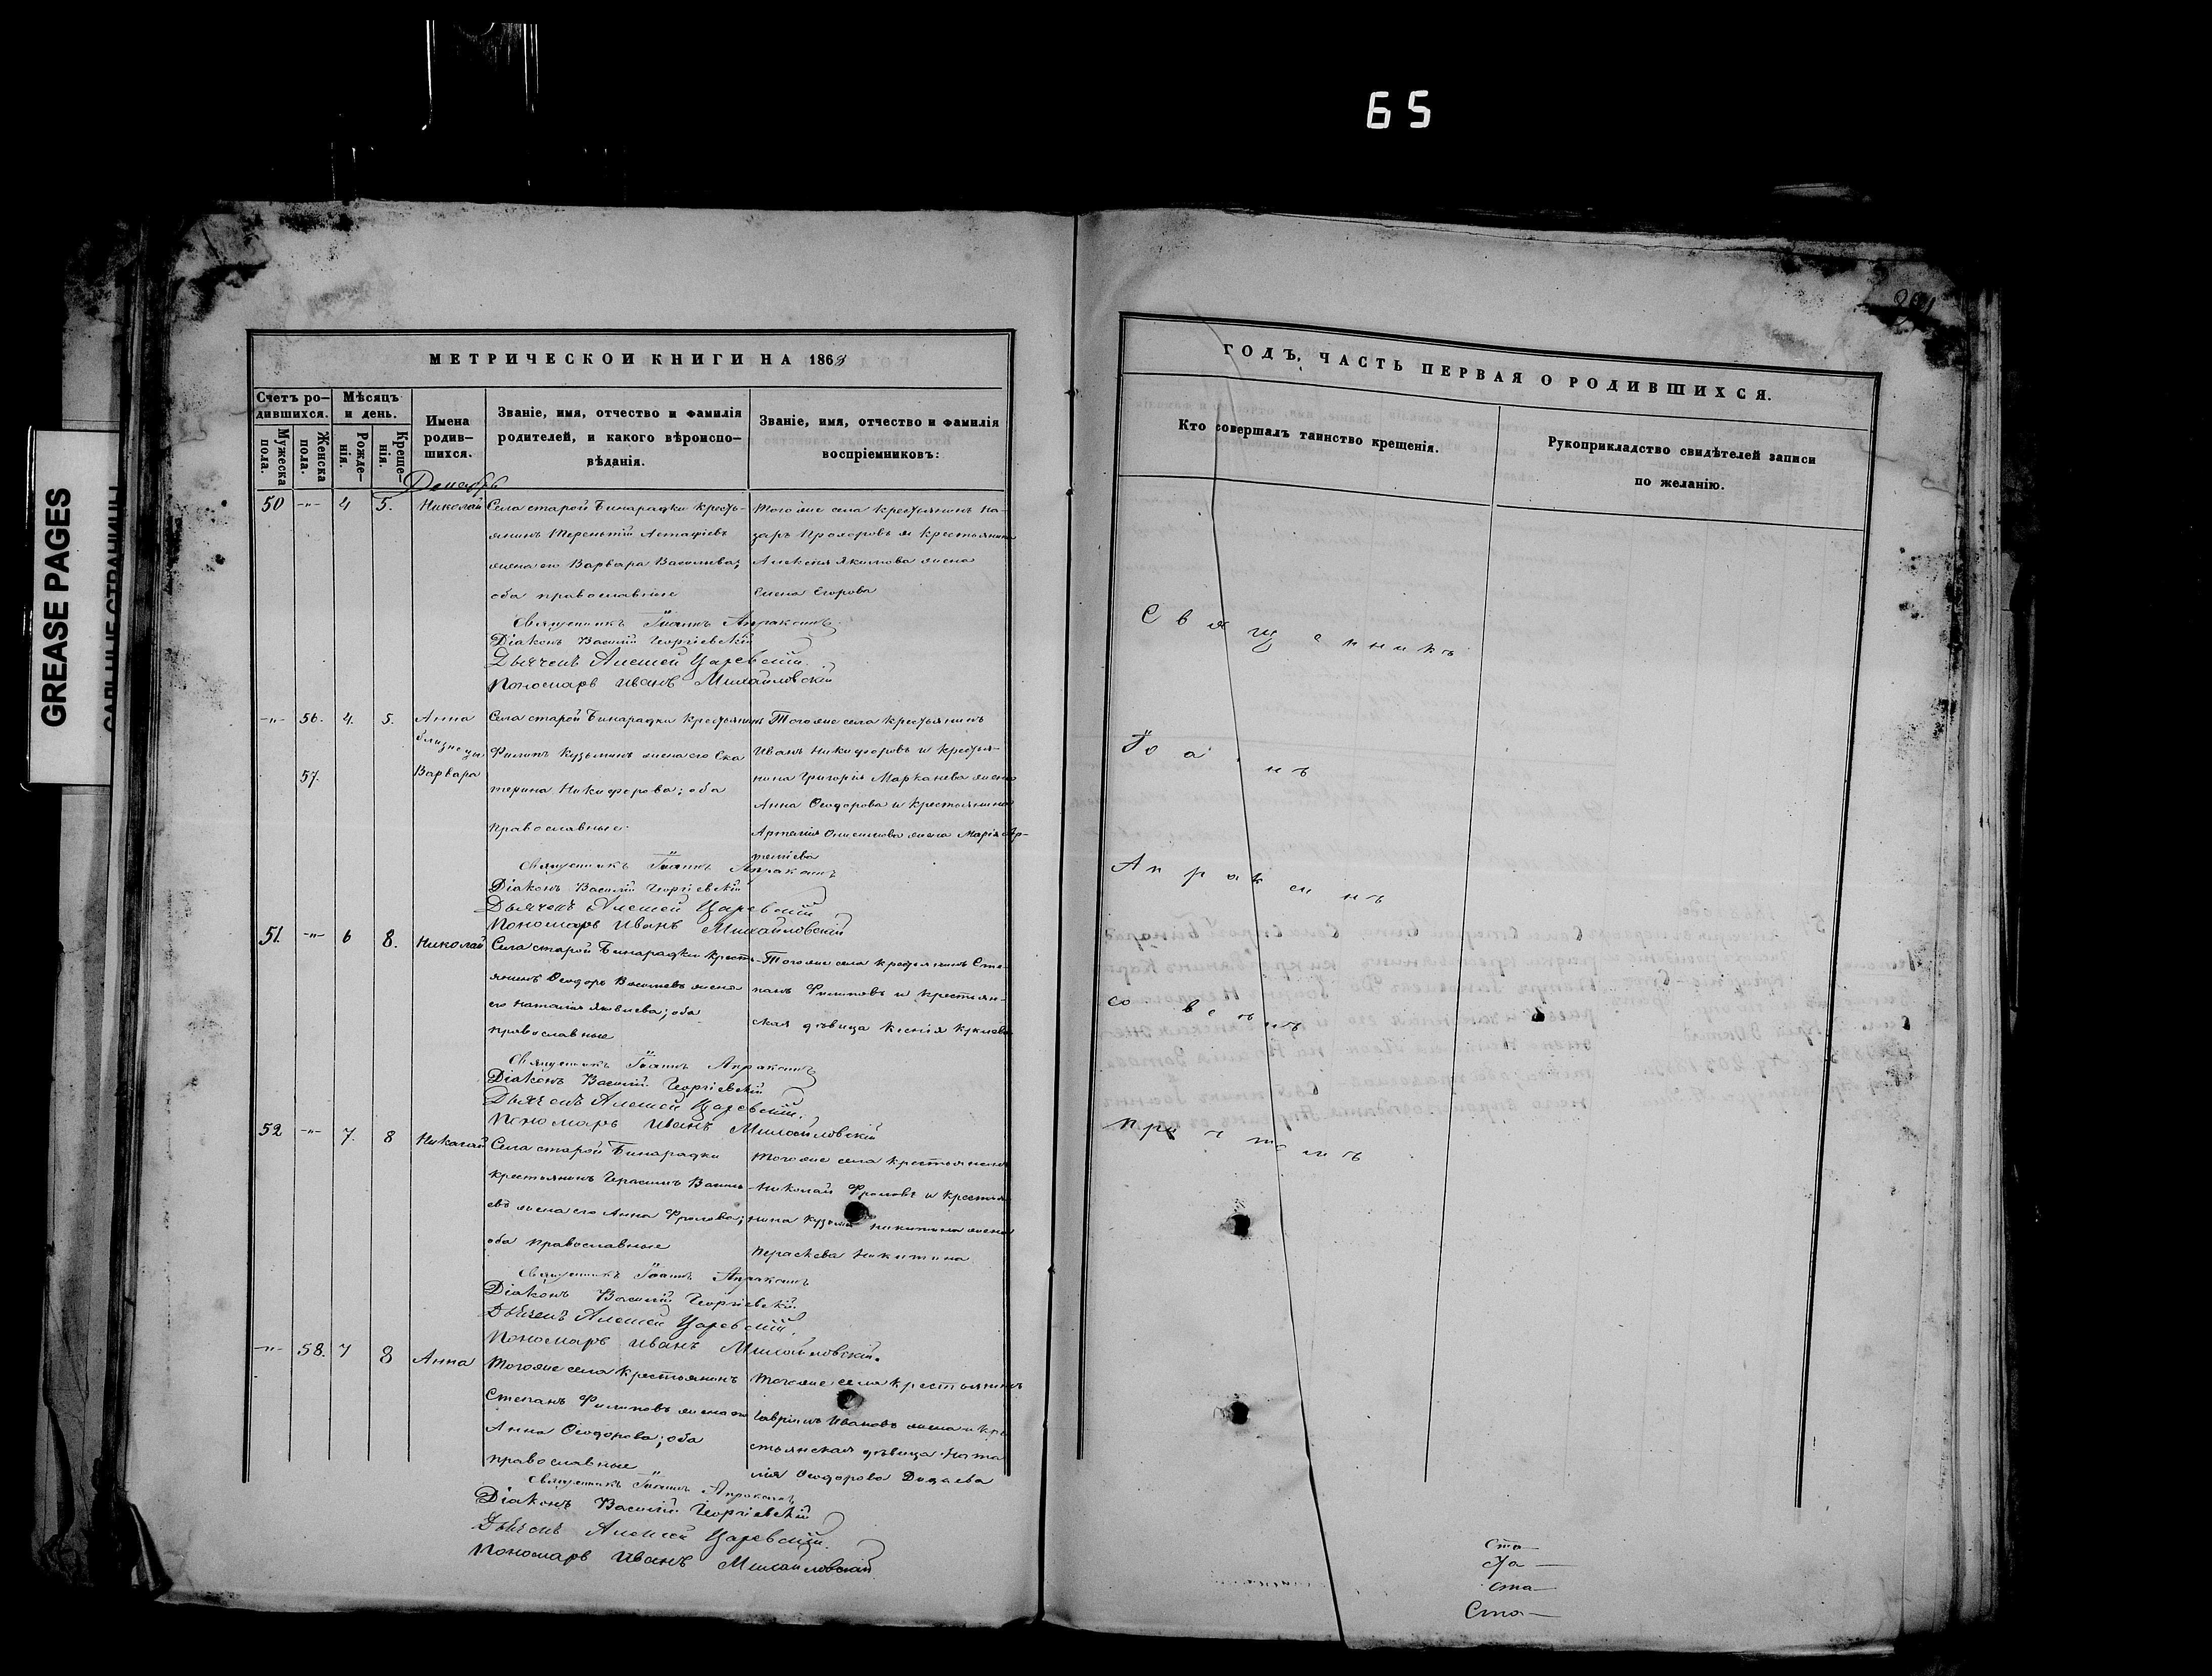 65
GREASE PAGES
МЕТРИЧЕСКОЙ КНИГИ НА 1863
Счетъ ро-
дившихся.
Мѣсяцъ
и день.
Мужеска
пола.
Женска
пола.
Рожде-
нія.
Креще-
нія.
Имена
родив-
шихся.
Званіе, имя, отчество и фамилія
родителей, и какого вѣроиспо-
вѣданія.
Званіе, имя, отчество и фамилія
воспріемниковъ:
Декабрь
50 -"- 4 5. Николай
Села старой Бинарадки кресть-
янинъ Терентій Астафіевъ
жена его Варвара Васильева;
оба православные
Тогоже села крестьянинъ На-
заръ Прохоровъ и крестьянина
Алексѣя Якимова жена
Елена Егорова
Священникъ Іоаннъ Апраксинъ
Діаконъ Василій Георгіевскій
Дьячекъ Алексей Царевскій.
Пономарь Иванъ Михайловскій
-"- 56. 4. 5. Анна
близнецы
57. Варвара
Села старой Бинарадки крестьянинъ
Филипъ Кузьминъ жена его Ека
терина Никифорова; оба
православные.
Тогоже села крестьянинъ
Иванъ Никифоровъ и крестья-
нина Григорія Маркачева жена
Анна Ѳеодорова и крестьянина
Артемія Онисимова жена Марія Ар-
темьева
Священникъ Іоаннъ Апраксинъ
Діаконъ Василій Георгіевскій
Дьячекъ Алексей Царевскій
Пономарь Иванъ Михайловскій
51. -"- 6 8. Николай
Села старой Бинарадки кресть-
янинъ Ѳеодоръ Васильевъ жена
его Наталія Яковлева; оба
православные
Тогоже села крестьянинъ Сте-
панъ Филиповъ и крестьян-
ская дѣвица Ксенія
Священникъ Іоаннъ Апраксинъ
Діаконъ Василій Георгіевскій
Дьячекъ Алексей Царевскій.
Пономарь Иванъ Михайловскій
52 -"- 7. 8 Николай
Села старой Бинарадки
крестьянинъ Герасимъ Василь-
евъ жена его Анна Фролова;
оба православные
Тогоже села крестьянинъ
Николай Фроловъ и крестья
нина Кузьмы Никитина жена
Пераскева Никитина
Священникъ Іоаннъ Апраксинъ
Діаконъ Василій Георгіевскій
Дьячекъ Алексей Царевскій.
Пономарь Иванъ Михайловскій.
-"- 58. 7 8 Анна
Тогоже села крестьянинъ
Степанъ Филиповъ жена его
Анна Ѳеодорова; оба
православные
Тогоже села крестьянинъ
Гавріилъ Ивановъ и кре
стьянская дѣвица Ната
лія Ѳеодорова
Священникъ Іоаннъ Апраксинъ
Діаконъ Василій Георгіевскій
Дьячекъ Алексей Царевскій.
Пономарь Иванъ Михайловскій
ГОДЪ, ЧАСТЬ ПЕРВАЯ О РОДИВШИХСЯ.
Кто совершалъ таинство крещенія.
Рукоприкладство свидѣтелей записи
по желанію.
Священникъ
Іоаннъ
Апраксинъ
со
причтомъ
Ста-
Ста-
Ста-